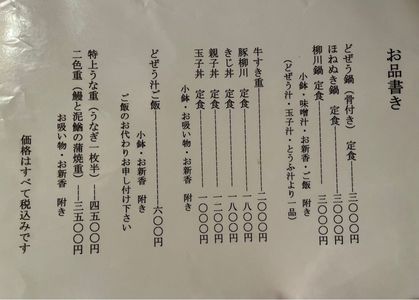 お品書き
どぜう鍋（骨付き）定食――三〇〇〇円
ほねぬき鍋 定食――三〇〇〇円
柳川鍋 定食――三〇〇〇円
小鉢・味噌汁・お新香・ご飯 付き
（どぜう汁・玉子汁・とうふ汁より一品）
牛すき重――二〇〇〇円
豚柳川 定食――一八〇〇円
きじ丼 定食――一八〇〇円
親子丼 定食――一二〇〇円
玉子丼 定食――一〇〇〇円
小鉢・お吸い物・お新香 付き
どぜう汁ご飯――六〇〇円
小鉢・お新香 付き
ご飯のお代わりお申し付け下さい
特上うな重（うなぎ一枚半）――四五〇〇円
二色重（鰻と泥鰌の蒲焼重）――三五〇〇円
お吸い物・お新香 付き
価格はすべて税込みです